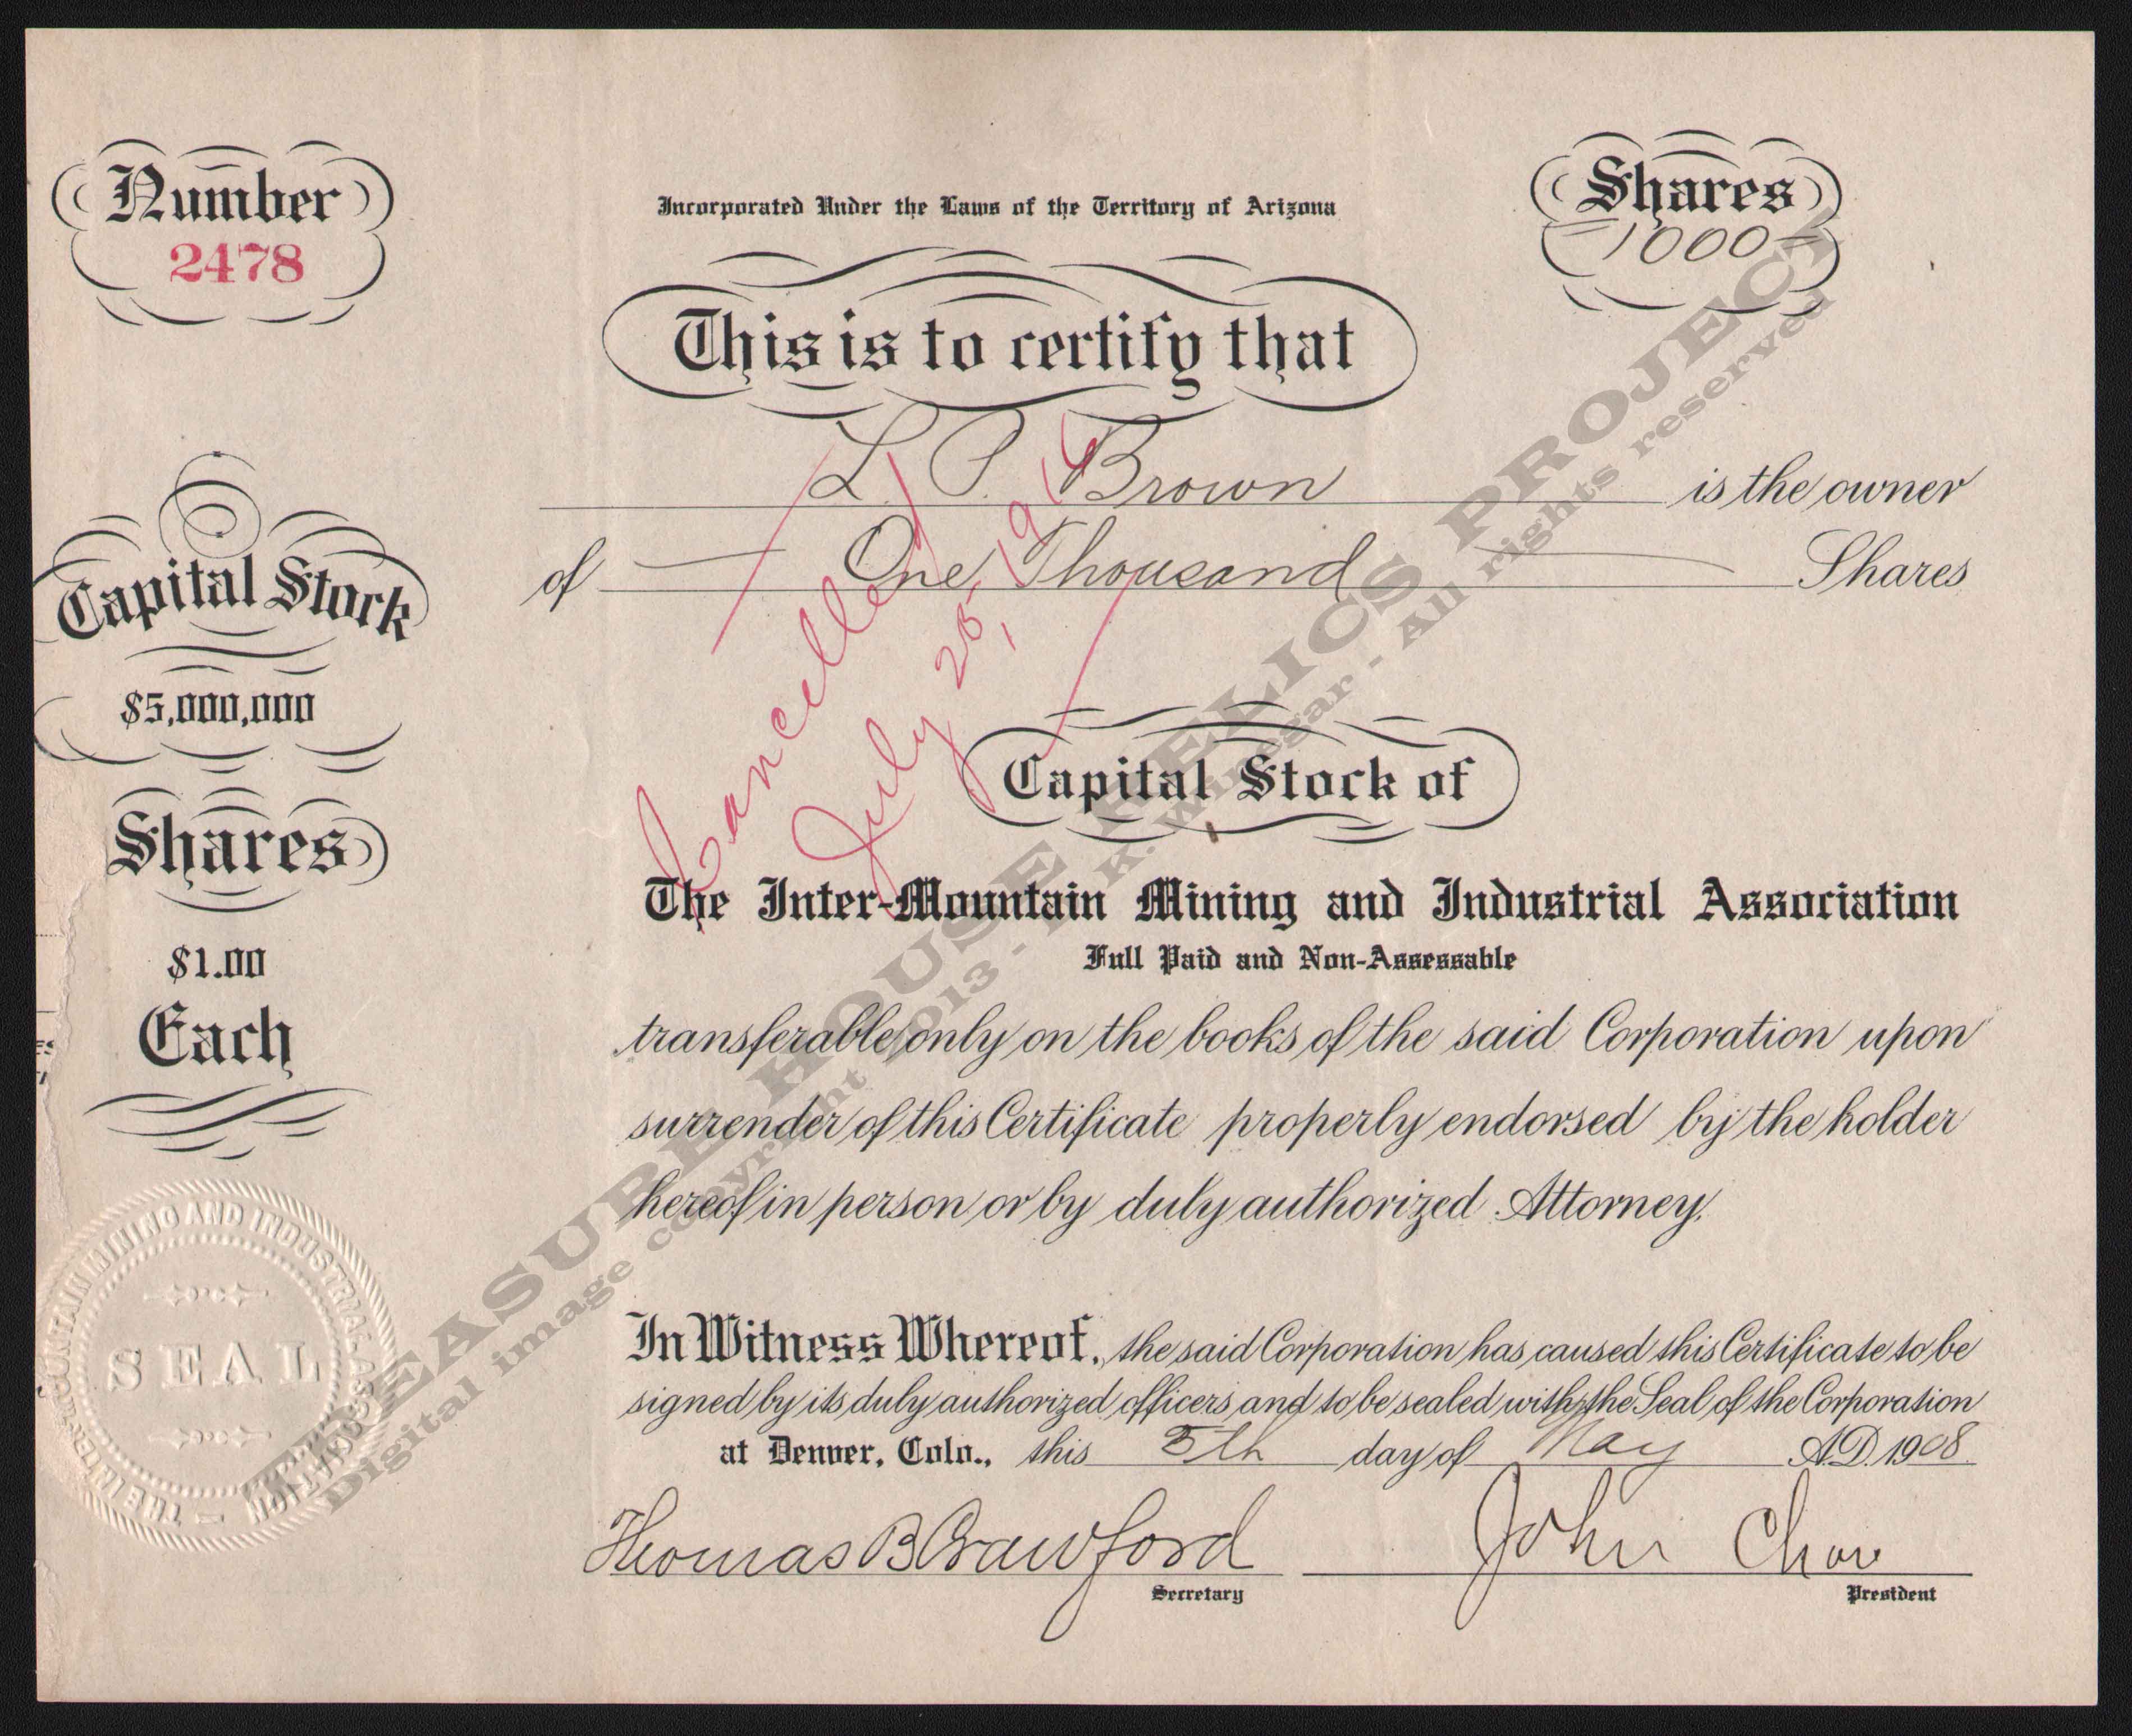 Number
2478
Incorporated Under the Laws of the Territory of Arizona
Shares
1000
This is to certify that
L. P. Brown is the owner
of One Thousand Shares
Cancelled
July 28, 1914
Capital Stock
$5,000,000
Shares
$1.00
Each
Capital Stock of
The Inter-Mountain Mining and Industrial Association
Full Paid and Non-Assessable
transferable only on the books of the said Corporation upon
surrender of this Certificate properly endorsed by the holder
hereof in person or by duly authorized Attorney.
In Witness Whereof, the said Corporation has caused this Certificate to be
signed by its duly authorized officers and to be sealed with the Seal of the Corporation
at Denver, Colo., this 5th day of May A.D. 1908
Thomas B Crawford
Secretary
John Chow
President
THE INTER-MOUNTAIN MINING AND INDUSTRIAL ASSOCIATION
SEAL
TREASURE HOUSE RELICS PROJECT
Digital image copyright 2013 - K. Winegar - All rights reserved